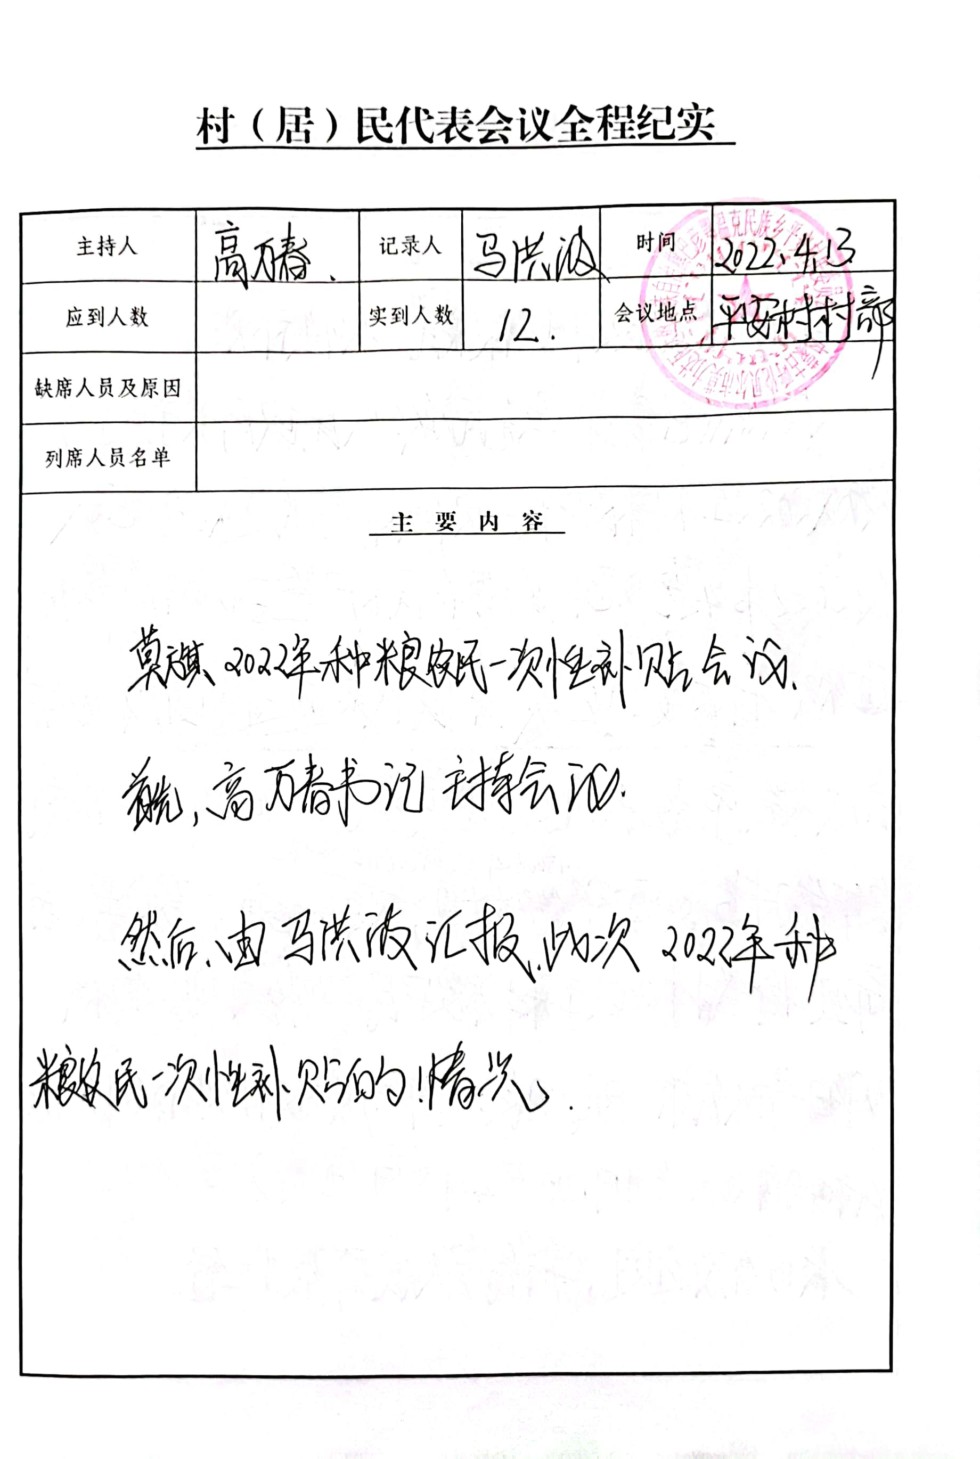 村（居）民代表会议全程纪实
主持人 高万春. 记录人 马洪波 时间 2022.4.13
应到人数 实到人数 12. 会议地点 平安村村部
缺席人员及原因
列席人员名单
主要内容
莫旗2022年种粮农民一次性补贴会议.
首先,高万春书记主持会议.
然后,由马洪波汇报,此次2022年种
粮农民一次性补贴的情况.